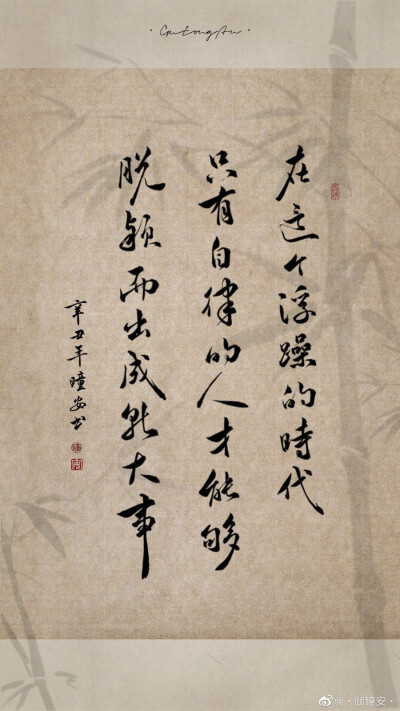 在这个浮躁的時代
只有自律的人才能够
脱颖而出成就大事
辛丑年瞳安书